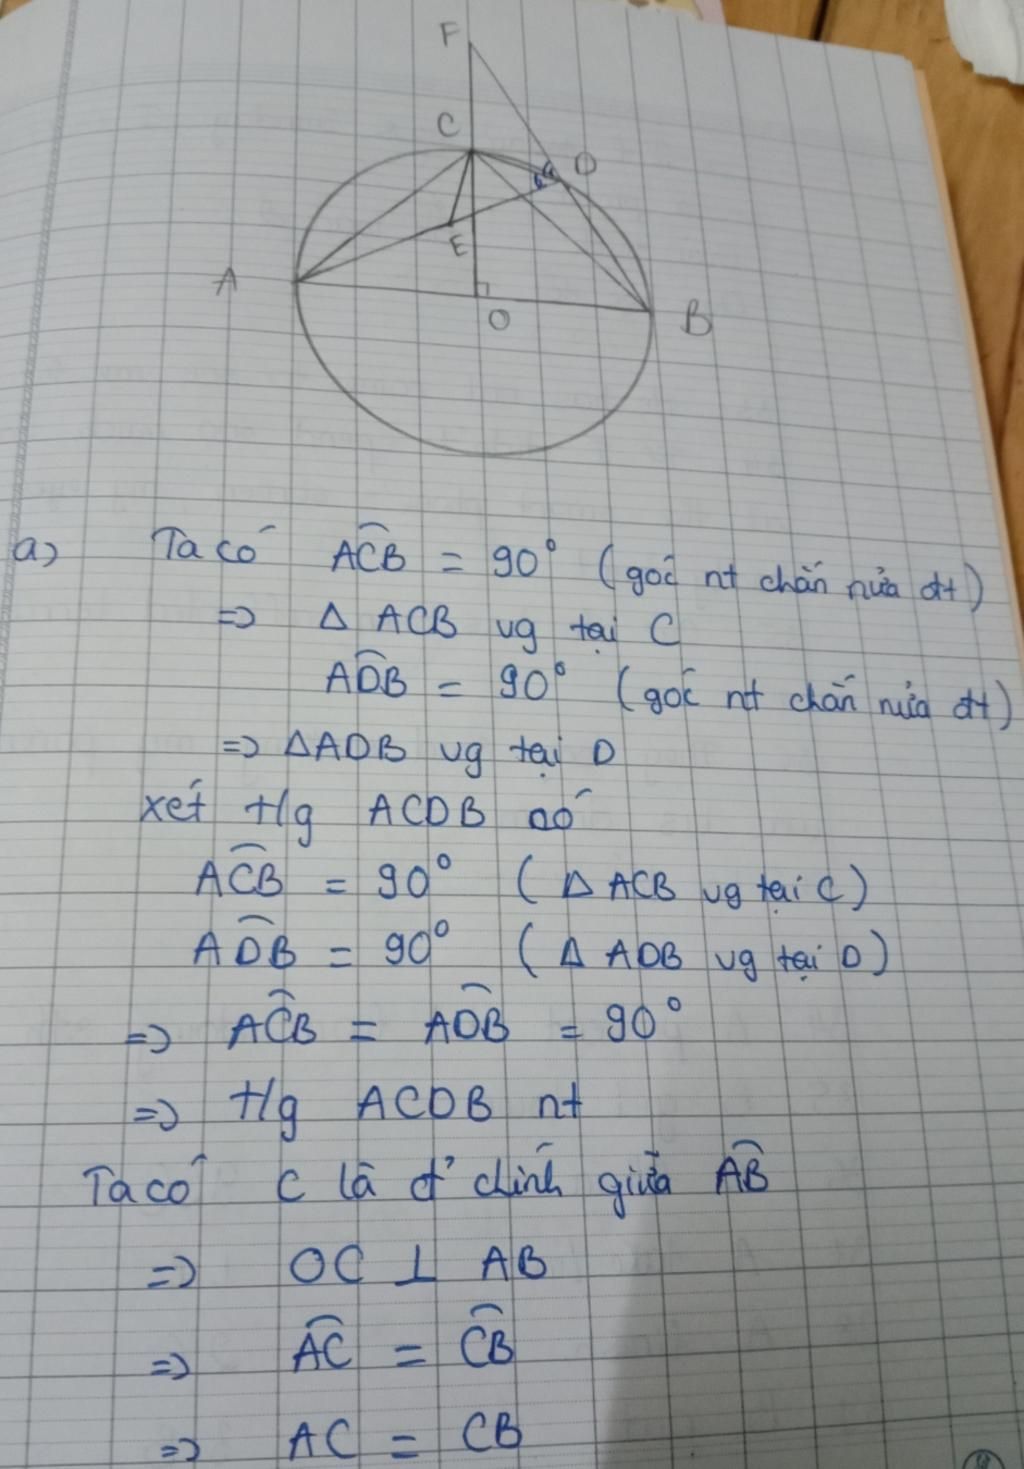 F
C
D
E
A
O
B
a) Ta có ACB = 90° (góc nt chắn nửa đt)
=> Δ ACB vg tại C
ADB = 90° (góc nt chắn nửa đt)
=> ΔADB vg tại D
xét t/g ACDB có
ACB = 90° (Δ ACB vg tại C)
ADB = 90° (Δ ADB vg tại D)
=> ACB = ADB = 90°
=> t/g ACDB nt
Ta có C là đ' chính giữa AB
=> OC ⊥ AB
=> AC = CB
=> AC = CB